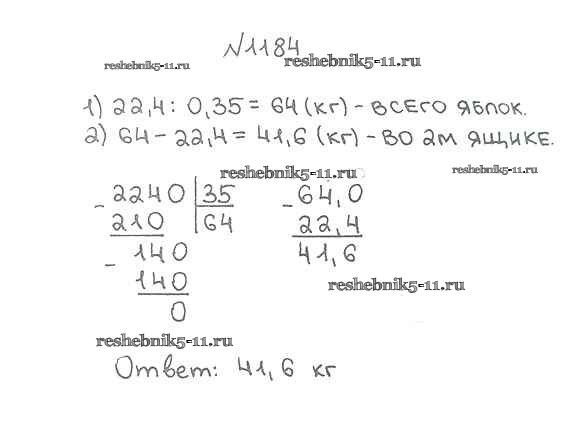 №1184
reshebnik5-11.ru reshebnik5-11.ru
1) 22,4 : 0,35 = 64 (кг) - ВСЕГО ЯБЛОК.
2) 64 - 22,4 = 41,6 (кг) - ВО 2М ЯЩИКЕ.
reshebnik5-11.ru reshebnik5-11.ru
- 2240 | 35 - 64,0
210 | 64 22,4
- 140 41,6
140 reshebnik5-11.ru
0
reshebnik5-11.ru
Ответ: 41,6 кг